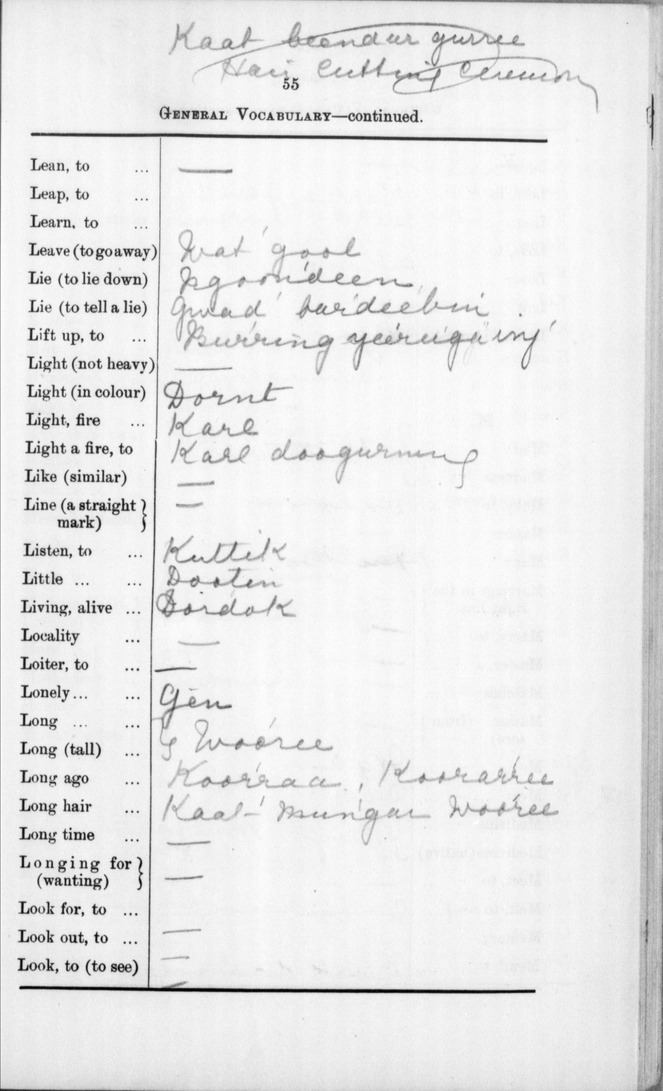 Kaat beendur gurree
Hair Cutting Ceremony
55
GENERAL VOCABULARY—continued.
Lean, to ... —
Leap, to ...
Learn, to ...
Leave (to go away) Wat' gool
Lie (to lie down) Ngoon'deen
Lie (to tell a lie) Gwad' bur'deebin'
Lift up, to ... Burring
Light (not heavy) —
Light (in colour) Dornt
Light, fire ... Karl
Light a fire, to Karl doogurning
Like (similar) —
Line (a straight mark) } —
Listen, to ... Kuttik
Little ... ... Bootin
Living, alive ... Dordok
Locality ... —
Loiter, to ... —
Lonely ... ... Gēn
Long ... ...
Long (tall) ... } Woōree
Long ago ... Koor'raa, Koorarree
Long hair ... Kaat mun'gar wooree
Long time ... —
Longing for (wanting) } —
Look for, to ...
Look out, to ... —
Look, to (to see) —